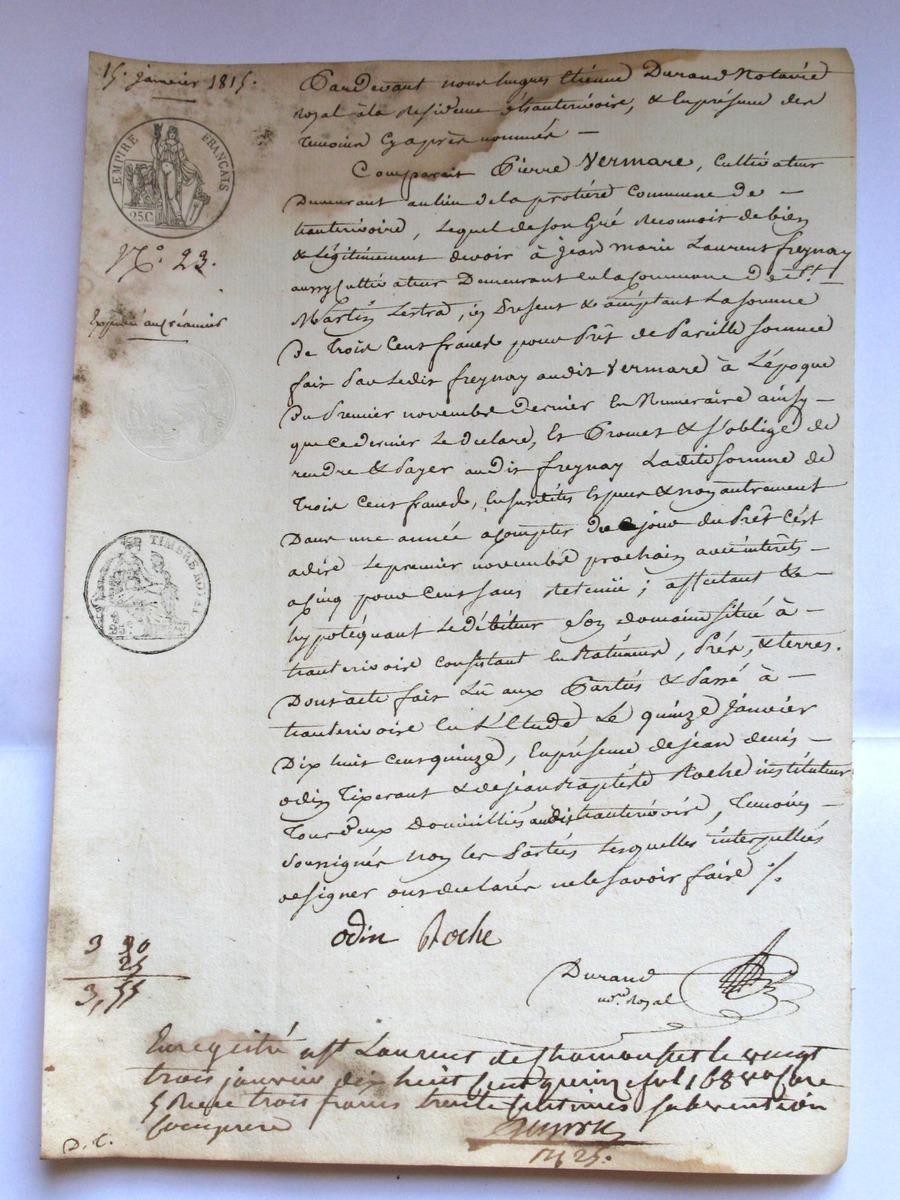 15. janvier 1815.
EMPIRE FRANÇAIS
25C
N.º 23.
Expédié au créancier
TIMBRE ROYAL
25c
Pardevant nous hugues Etienne Durand Notaire
royal à la Residence d'hauterivoire, & En présence des
temoins Cy après nommés —
Comparait Pierre Vermare, Cultivateur
Demeurant au lieu de la protière Commune de —
hauterivoire, Lequel de son Gré Reconnoit de bien
& Légitimement devoir à jean marie Laurent freynay
aussy Cultivateur Demeurant en la Commune de St.
Martin Lestra, icy Present & acceptant La somme
De Trois Cent francs pour Prêt de Pareille somme
fait Par Ledit freynay audit Vermare à L'époque
Du Premier novembre Dernier En Numeraire ainsy —
que ce dernier Le declare, Et Promet & s'oblige de
rendre & Payer audit freynay Ladite somme de
Trois Cent francs, En susdites Espèces & non autrement
Dans une année a compter du jour du Prêt C'est
adire Le premier novembre prochain avec intérêts —
a Cinq pour Cent sans retenüe; affectant & —
hypotéquant Le débiteur son domaine situé à —
hauterivoire Consistant En Batiments, Prés, & terres.
Dont acte fait Lû aux Parties & Passé à —
hauterivoire En L'Etude Le quinze janvier
Dix huit Cent quinze, En présence de jean denis —
odin Tixerant & de jean Baptiste Roche instituteur
Tous deux Domiciliés audit hauterivoire, Temoins —
soussignés non les Parties Lesquelles interpellées
de signer ont declarés ne le savoir faire ./.
odin Roche
Durand
no.re royal
3 30
25
3,55
Enregistré a St Laurent de Chamousset le vingt
trois janvier dix huit Cent quinze fol 168 v
Reçu trois francs trente Centimes subvention
Comprise
D. C.